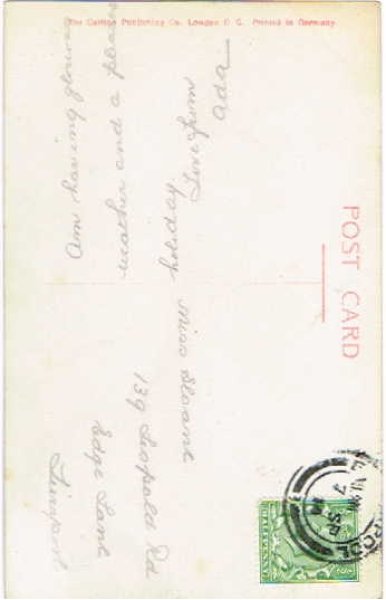 The Carlton Publishing Co. London E.C. Printed in Germany.
POST CARD
Am having
weather and a
holiday
Love from
Ada
Miss Sloane
139 Leopold Rd
Edge Lane
Liverpool